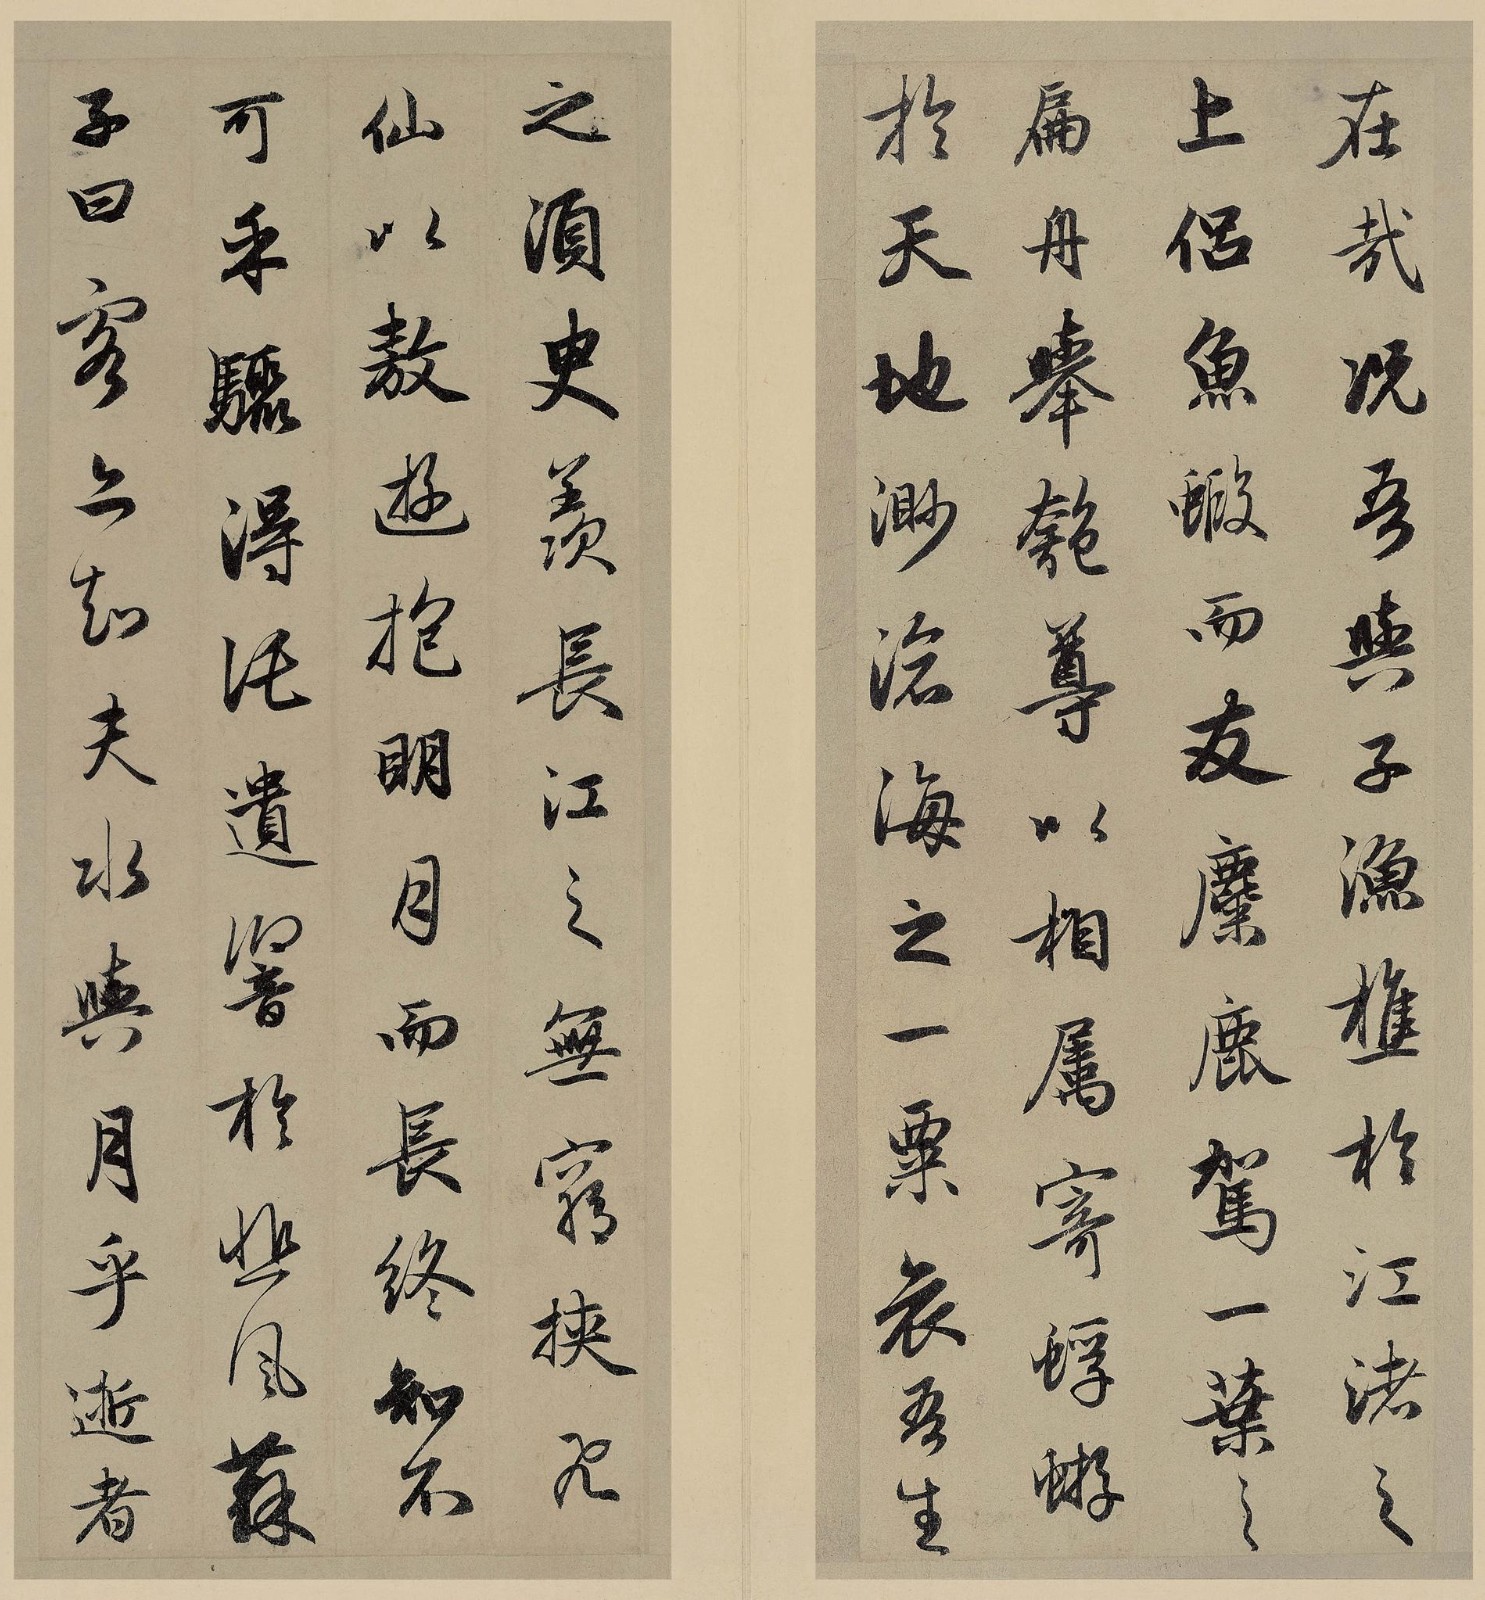 在哉况吾與子漁樵於江渚之
上侶魚蝦而友麋鹿駕一葉之
扁舟舉匏尊以相屬寄蜉蝣
於天地渺滄海之一粟哀吾生
之須臾羨長江之無窮挾飛
仙以敖遊抱明月而長終知不
可乎驟得託遺響於悲風蘇
子曰客亦知夫水與月乎逝者